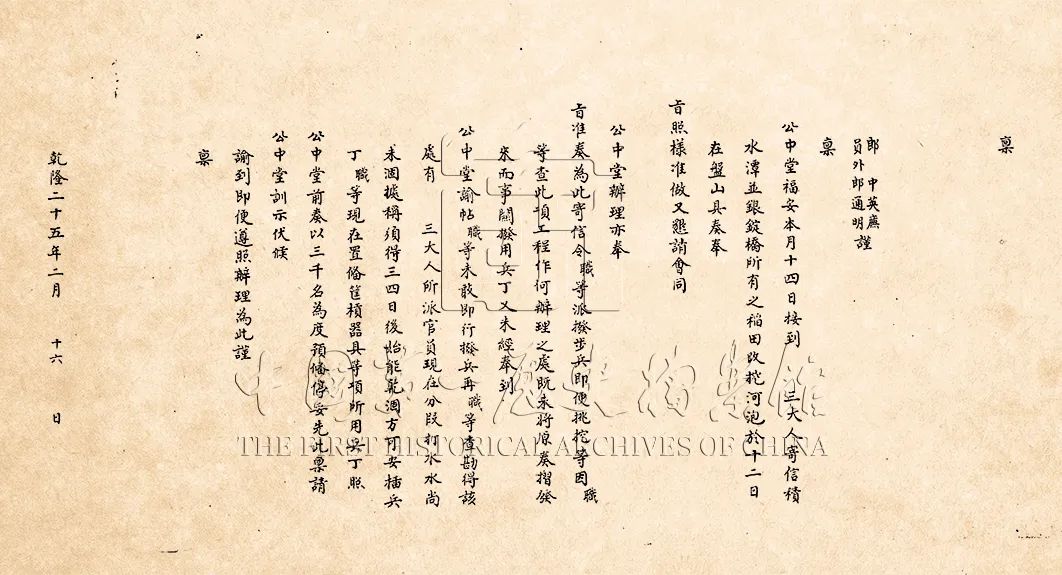 稟
郎中英廉
員外郎通明謹
稟
公中堂福安本月十四日接到　三大人寄信積
水潭並銀錠橋所有之稻田改挖河泡於十二日
在盤山具奏奉
旨照樣准做又懇請會同
公中堂辦理亦奉
旨准奏為此寄信令職等派撥步兵即便挑挖等因職
等查此項工程作何辦理之處既未將原奏摺發
來而事關撥用兵丁又未經奉到
公中堂諭帖職等未敢即行撥兵再職等查勘得該
處有　三大人所派官員現在分段打水水尚
未涸據稱須得三四日後始能乾涸方可安插兵
丁職等現在置備筐槓器具等項所用兵丁照
公中堂前奏以三千名為度預備停妥先此稟請
公中堂訓示伏候
諭到即便遵照辦理為此謹
稟
乾隆二十五年二月　十六　日
中國第一歷史檔案館
THE FIRST HISTORICAL ARCHIVES OF CHINA